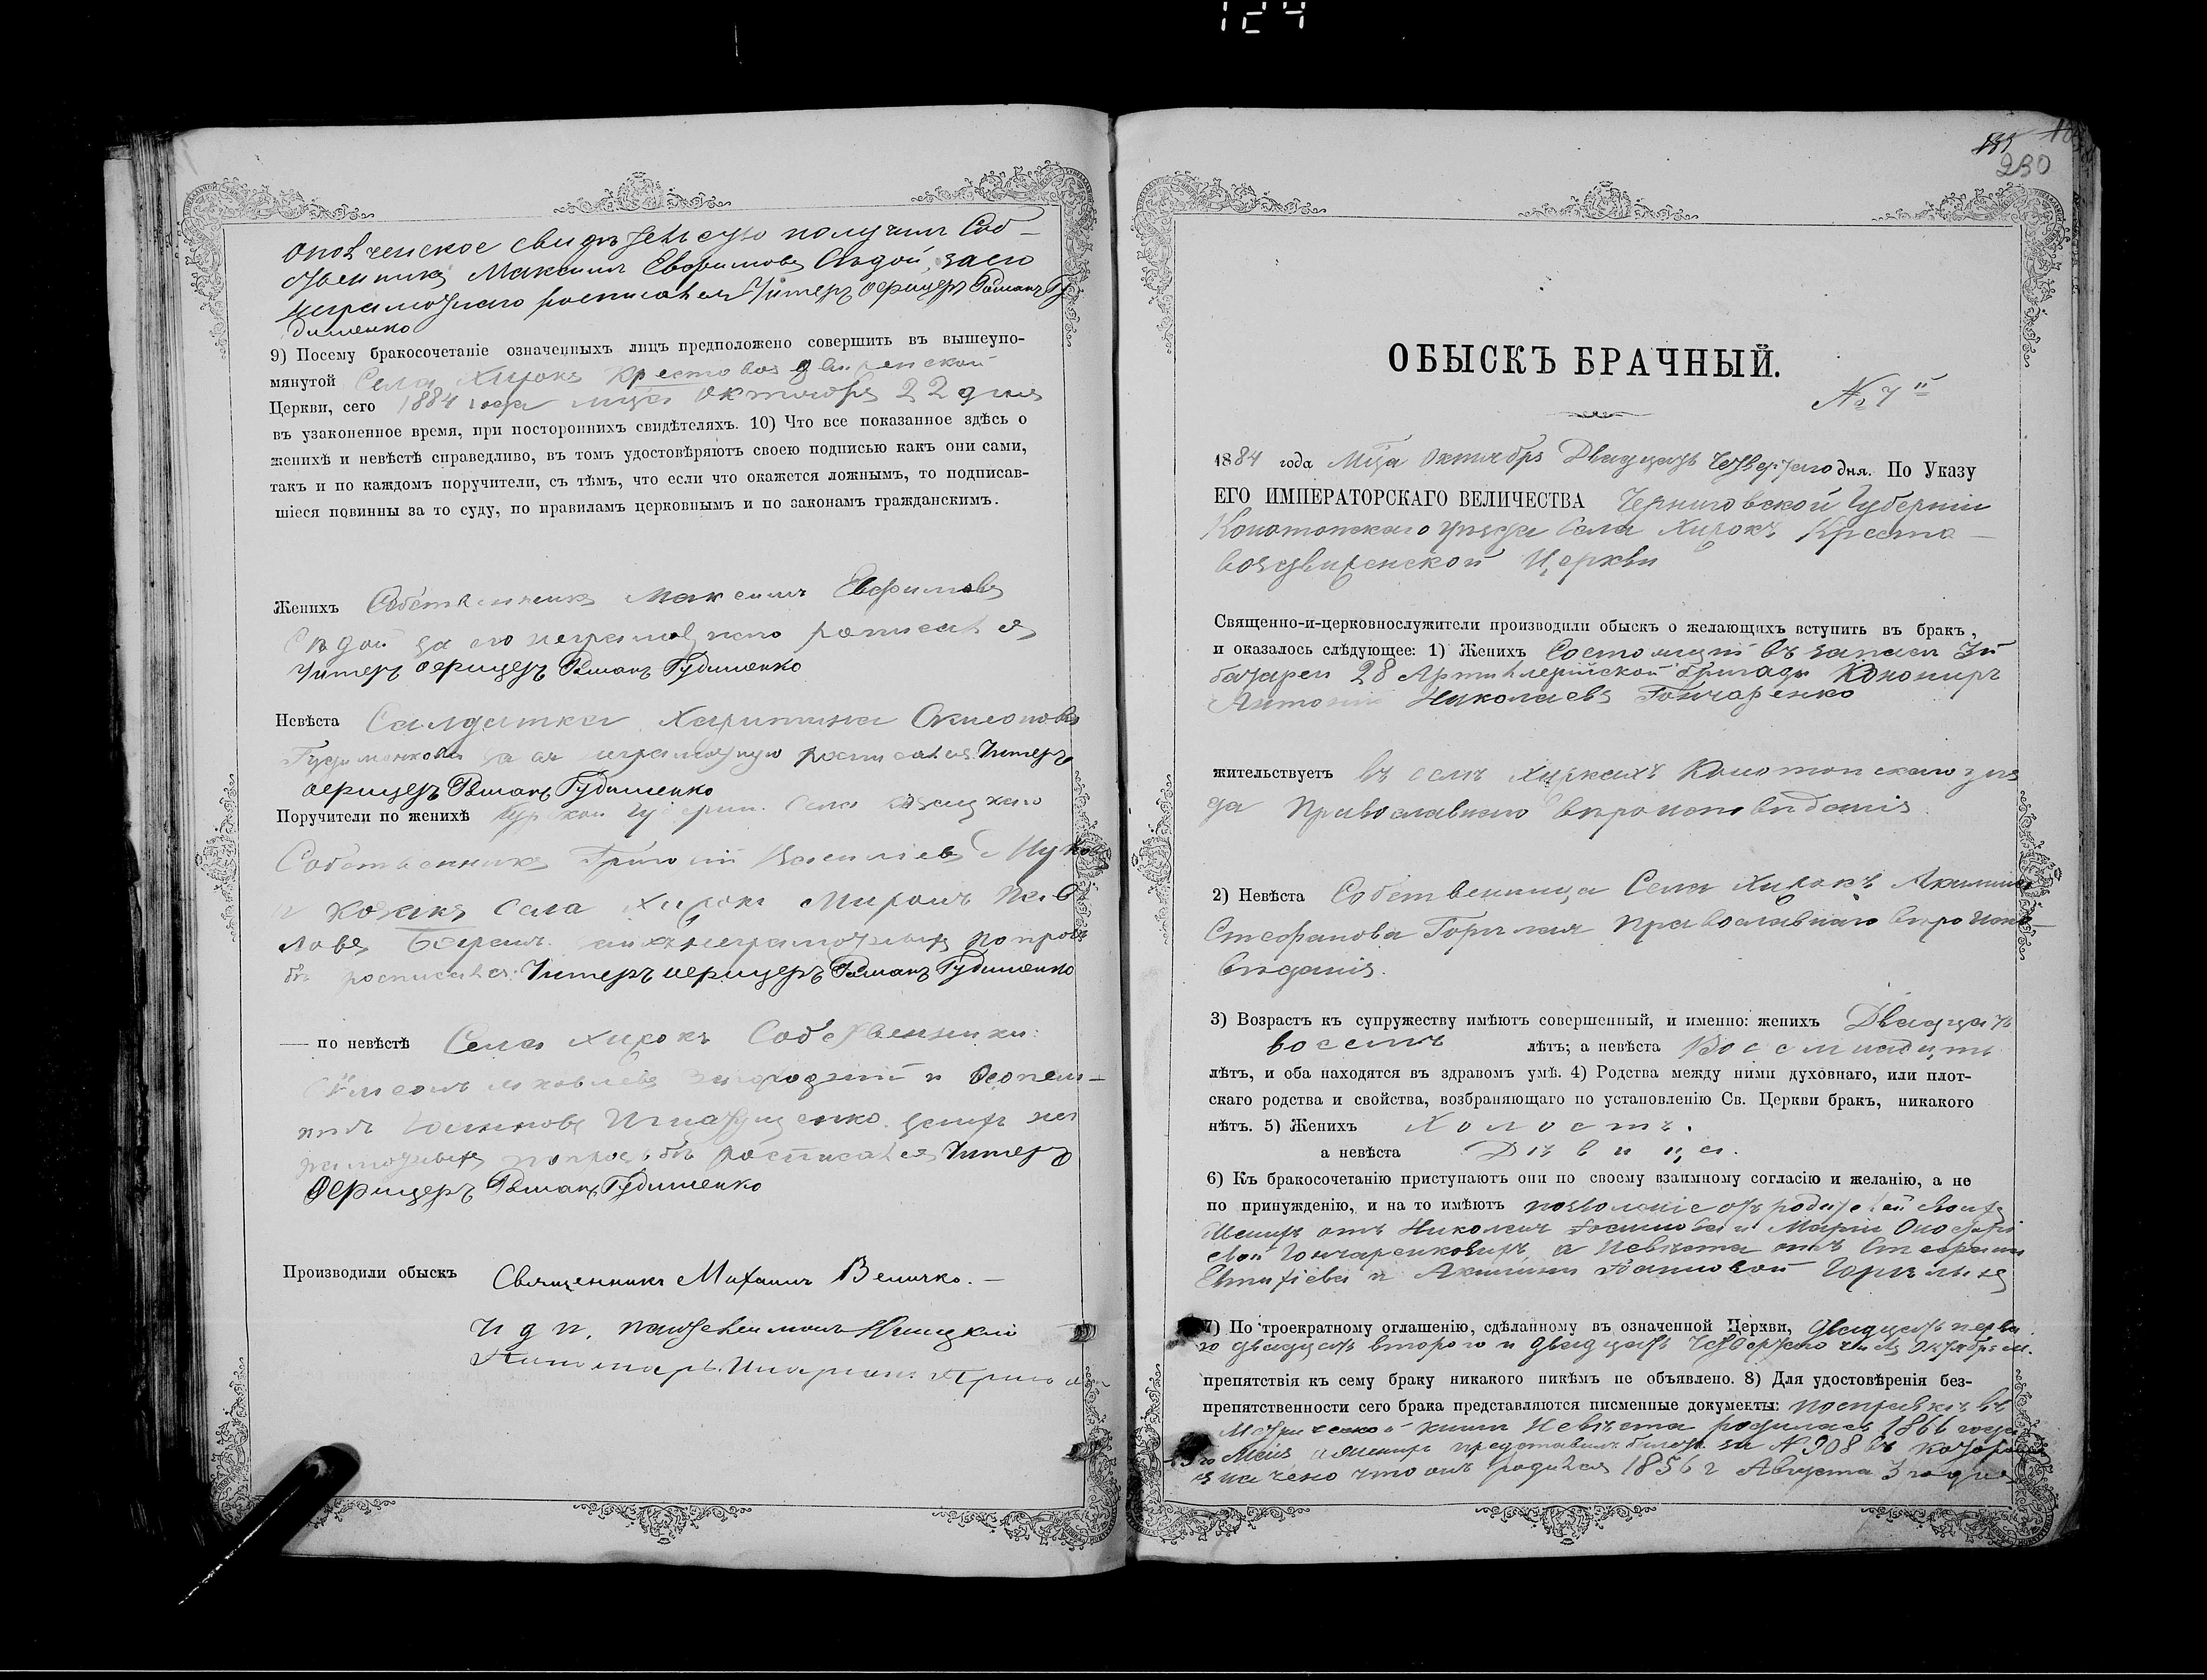 124
ополченское свидѣтельство получилъ Соб-
ственникъ Максимъ Евфимовъ Сѣдой, за его
неграмотнаго росписался Унтеръ офицеръ Романъ Гу
дименко
9) Посему бракосочетаніе означенныхъ лицъ предположено совершить въ вышеупо-
мянутой Села Хирокъ Крестовоздвиженской
Церкви, сего 1884 года мѣсяца Октября 22 дня
въ узаконенное время, при постороннихъ свидѣтеляхъ. 10) Что все показанное здѣсь о
женихѣ и невѣстѣ справедливо, въ томъ удостовѣряютъ своею подписью какъ они сами,
такъ и по каждомъ поручители, съ тѣмъ, что если что окажется ложнымъ, то подписав-
шіеся повинны за то суду, по правиламъ церковнымъ и по законамъ гражданскимъ.
Женихъ Собственникъ Максимъ Евфимовъ
Сѣдой за его неграмотнаго росписался
Унтеръ офицеръ Романъ Гудименко
Невѣста Салдатка Харитина
Гудименкова за ея неграмотную росписался Унтеръ
офицеръ Романъ Гудименко
Поручители по женихѣ Курской Губерніи Села
Собственникъ Григорій Василіевъ
и Козакъ Села Хирокъ Миронъ
неграмотныхъ по прозь
бѣ росписался Унтеръ офицеръ Романъ Гудименко
— по невѣстѣ Села Хирокъ Собственники:
Яковлевъ и
Игнатценко
по прозьбѣ росписался Унтеръ
Офицеръ Романъ Гудименко
Производили обыскъ Священникъ Михаилъ Величко. —
И д п.
Пономарь
230
ОБЫСКЪ БРАЧНЫЙ.
№ 7й
1884 года Мца Октября Двадцать Четвертаго дня. По Указу
ЕГО ИМПЕРАТОРСКАГО ВЕЛИЧЕСТВА Черниговской Губерніи
Конотопскаго уѣзда Села Хирокъ Кресто-
воздвиженской Церкви
Священно-и-церковнослужители производили обыскъ о желающихъ вступить въ бракъ,
и оказалось слѣдующее: 1) Женихъ Состоящій въ запасѣ 3й
батареи 28 Артилерійской бригады Конониръ
Антоній Николаевъ Гончаренко
жительствуетъ въ селѣ Хиркахъ Конотопскаго уѣз
да Православнаго вѣроисповѣданія.
2) Невѣста Собственница Села Хирокъ Акилина
Стефанова Горѣлая Православнаго вѣроиспо-
вѣданія.
3) Возрастъ къ супружеству имѣютъ совершенный, и именно: женихъ Двадцать
восемъ лѣтъ; а невѣста Восемнадцать
лѣтъ, и оба находятся въ здравомъ умѣ. 4) Родства между ними духовнаго, или плот-
скаго родства и свойства, возбраняющаго по установленію Св. Церкви бракъ, никакого
нѣтъ. 5) Женихъ Холостъ.
а невѣста Дѣвица.
6) Къ бракосочетанію приступаютъ они по своему взаимному согласію и желанію, а не
по принужденію, и на то имѣютъ позволеніе отъ родителей своихъ
Женихъ отъ Николая и Маріи
Гончаренковыхъ, а Невѣста отъ Стефана
Евтихіева и Акилины Горѣлыхъ
7) По троекратному оглашенію, сдѣланному въ означенной Церкви, двадцать перва
го двадцать второго и двадцать четвертаго числъ Октября м.
препятствія къ сему браку никакого никѣмъ не объявлено. 8) Для удостовѣренія без-
препятственности сего брака представляются писменные документы: по справкѣ въ
Метрической книгѣ Невѣста родилась 1866 года
Мая а Женихъ представилъ билетъ за № 908 въ которомъ
значено что онъ родился 1856 г Августа 3го дня